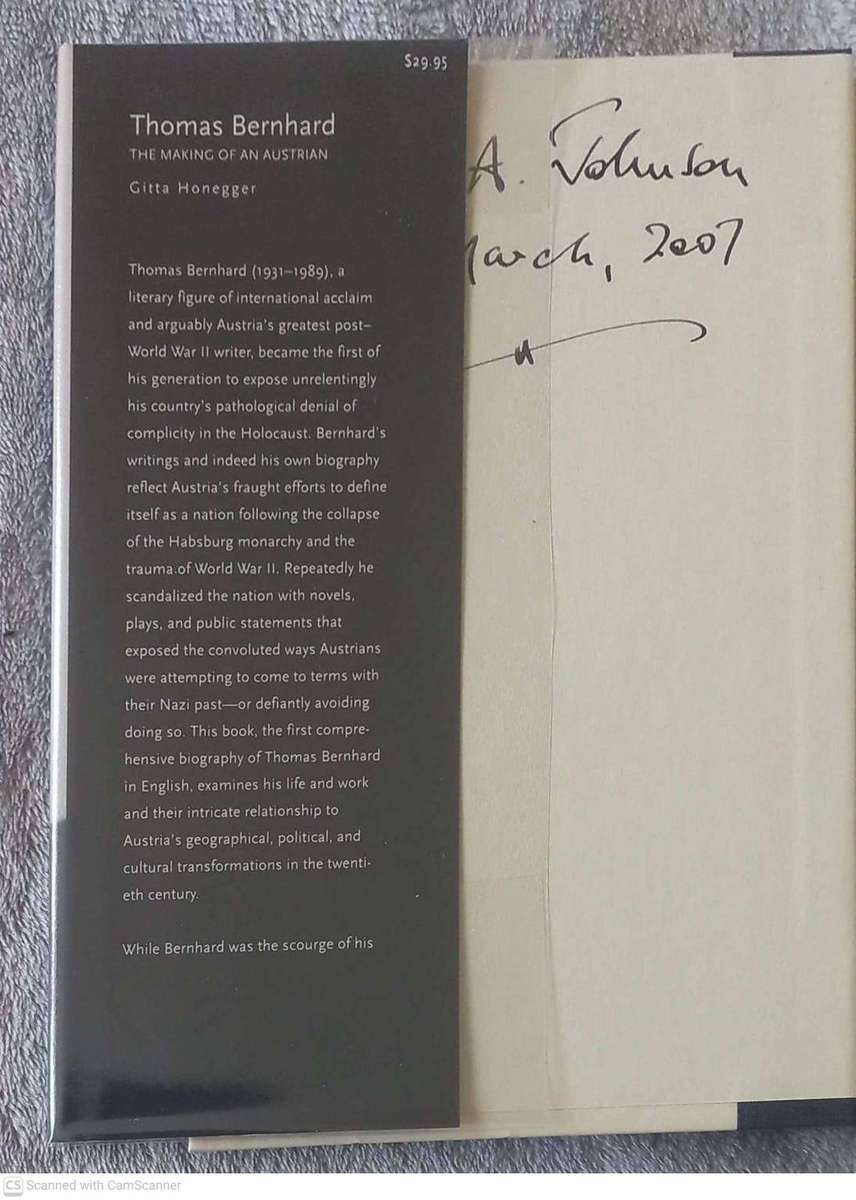 $29.95
Thomas Bernhard
THE MAKING OF AN AUSTRIAN
Gitta Honegger
Thomas Bernhard (1931–1989), a
literary figure of international acclaim
and arguably Austria's greatest post–
World War II writer, became the first of
his generation to expose unrelentingly
his country's pathological denial of
complicity in the Holocaust. Bernhard's
writings and indeed his own biography
reflect Austria's fraught efforts to define
itself as a nation following the collapse
of the Habsburg monarchy and the
trauma of World War II. Repeatedly he
scandalized the nation with novels,
plays, and public statements that
exposed the convoluted ways Austrians
were attempting to come to terms with
their Nazi past—or defiantly avoiding
doing so. This book, the first compre-
hensive biography of Thomas Bernhard
in English, examines his life and work
and their intricate relationship to
Austria's geographical, political, and
cultural transformations in the twenti-
eth century.
While Bernhard was the scourge of his
A. Johnson
arch, 2007
CS Scanned with CamScanner